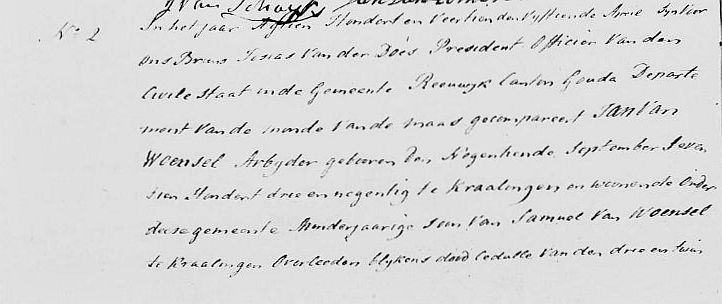 No 2
In het jaar Agtien Hondert en Veertien den Vyftiende syn voor
ons Bruno Josias Van der Does President Officier Van den
Civile Staat in de Gemeente Reeuwyk Canton Gouda Departe
ment Van de monde Van de maas gecompareert JanVan
Woensel Arbyder gebooren den Negentiende September Seven
tien Hondert drie en negentig te Kraalingen en woonende Onder
deese gemeente Minderjaarige Soon Van Samuel Van Woensel
te Kraalingen Overleeden blykens dood Cedulle Van den drie en twin